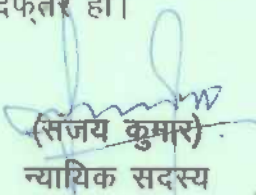 दफ्तर हो।
(संजय कुमार)
न्यायिक सदस्य